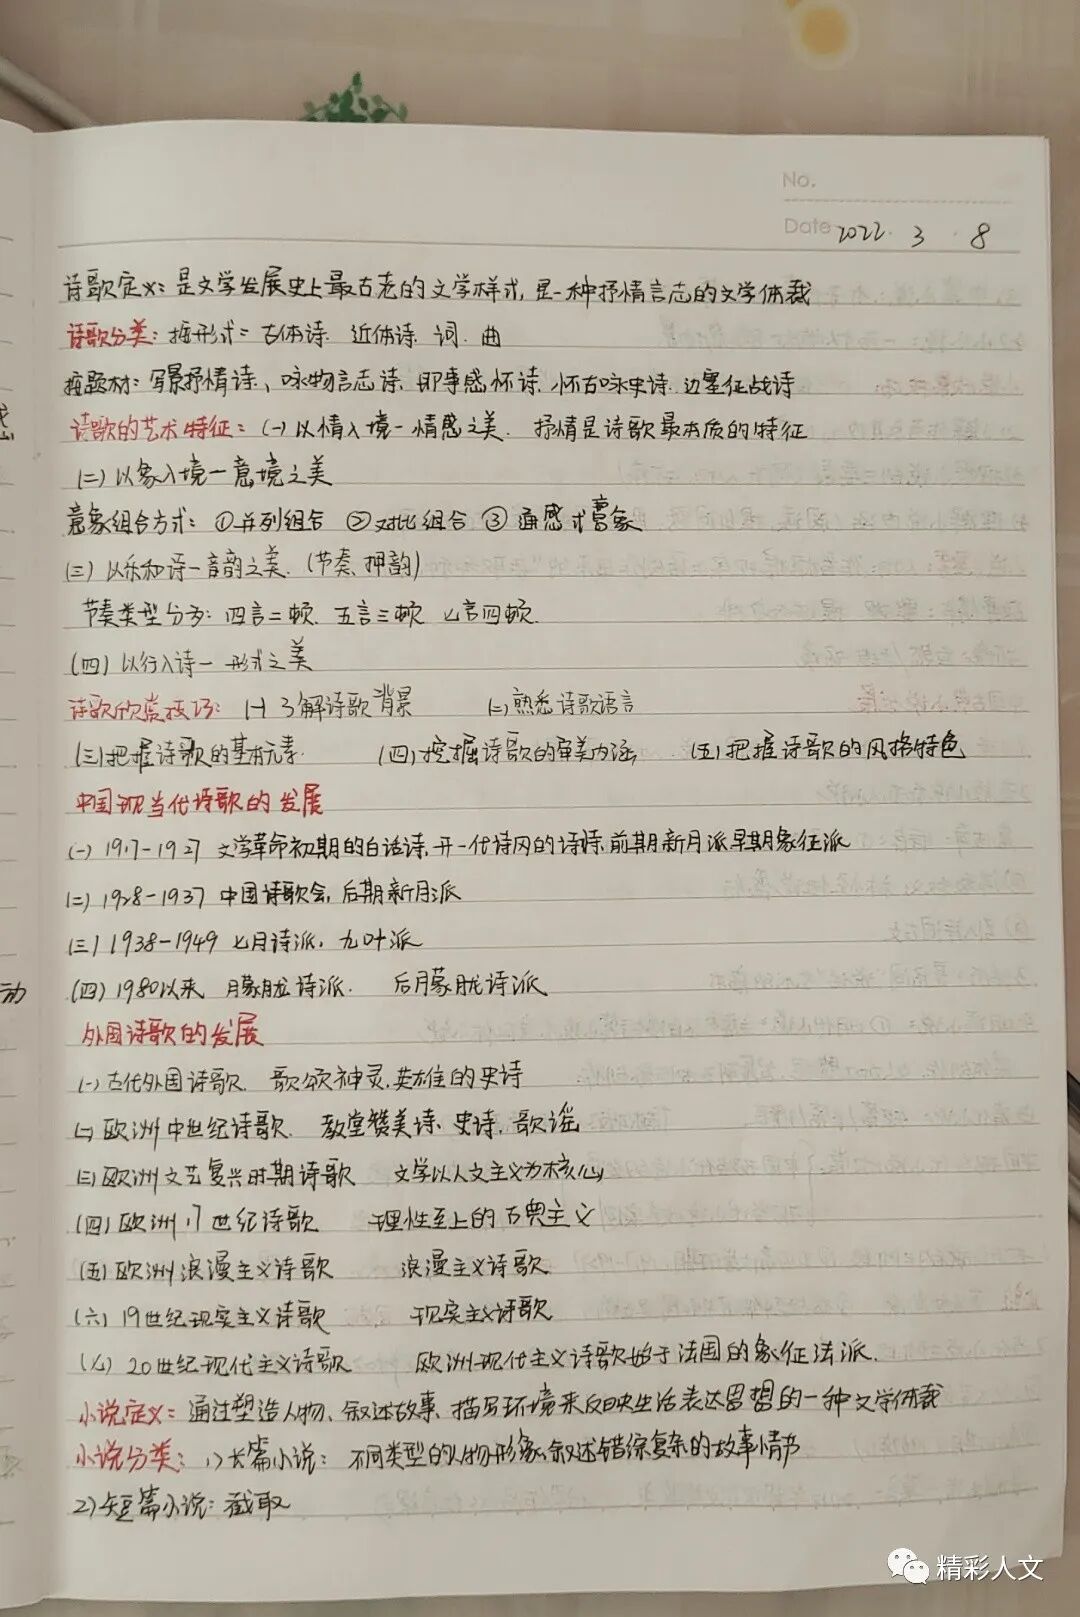 No.
Date 2022. 3 . 8
诗歌定义：是文学发展史上最古老的文学样式，是一种抒情言志的文学体裁
诗歌分类：按形式：古体诗、近体诗、词、曲
按题材：写景抒情诗、咏物言志诗、即事感怀诗、怀古咏史诗、边塞征战诗
诗歌的艺术特征：(一)以情入境—情感之美. 抒情是诗歌最本质的特征
(二)以象入境—意境之美
意象组合方式：①并列组合 ②对比组合 ③通感式意象
(三)以乐和诗—音韵之美.(节奏、押韵)
节奏类型分为：四言二顿、五言三顿 七言四顿.
(四)以行入诗—形式之美
诗歌欣赏技巧：(一)了解诗歌背景 (二)熟悉诗歌语言
(三)把握诗歌的基本元素. (四)挖掘诗歌的审美内涵 (五)把握诗歌的风格特色
中国现当代诗歌的发展
(一)1917-1927 文学革命初期的白话诗、开一代诗风的诗，前期新月派早期象征派
(二)1928-1937 中国诗歌会，后期新月派
(三)1938-1949 七月诗派，九叶派
(四)1980以来 朦胧诗派. 后朦胧诗派
外国诗歌的发展
(一)古代外国诗歌. 歌颂神灵、英雄的史诗
(二)欧洲中世纪诗歌. 教堂赞美诗、史诗、歌谣
(三)欧洲文艺复兴时期诗歌 文学以人文主义为核心
(四)欧洲17世纪诗歌 理性至上的古典主义
(五)欧洲浪漫主义诗歌 浪漫主义诗歌
(六)19世纪现实主义诗歌 现实主义诗歌
(七)20世纪现代主义诗歌 欧洲现代主义诗歌始于法国的象征法派.
小说定义：通过塑造人物、叙述故事、描写环境来反映生活表达思想的一种文学体裁
小说分类：1)长篇小说：不同类型的人物形象、叙述错综复杂的故事情节
2)短篇小说：截取
精彩人文